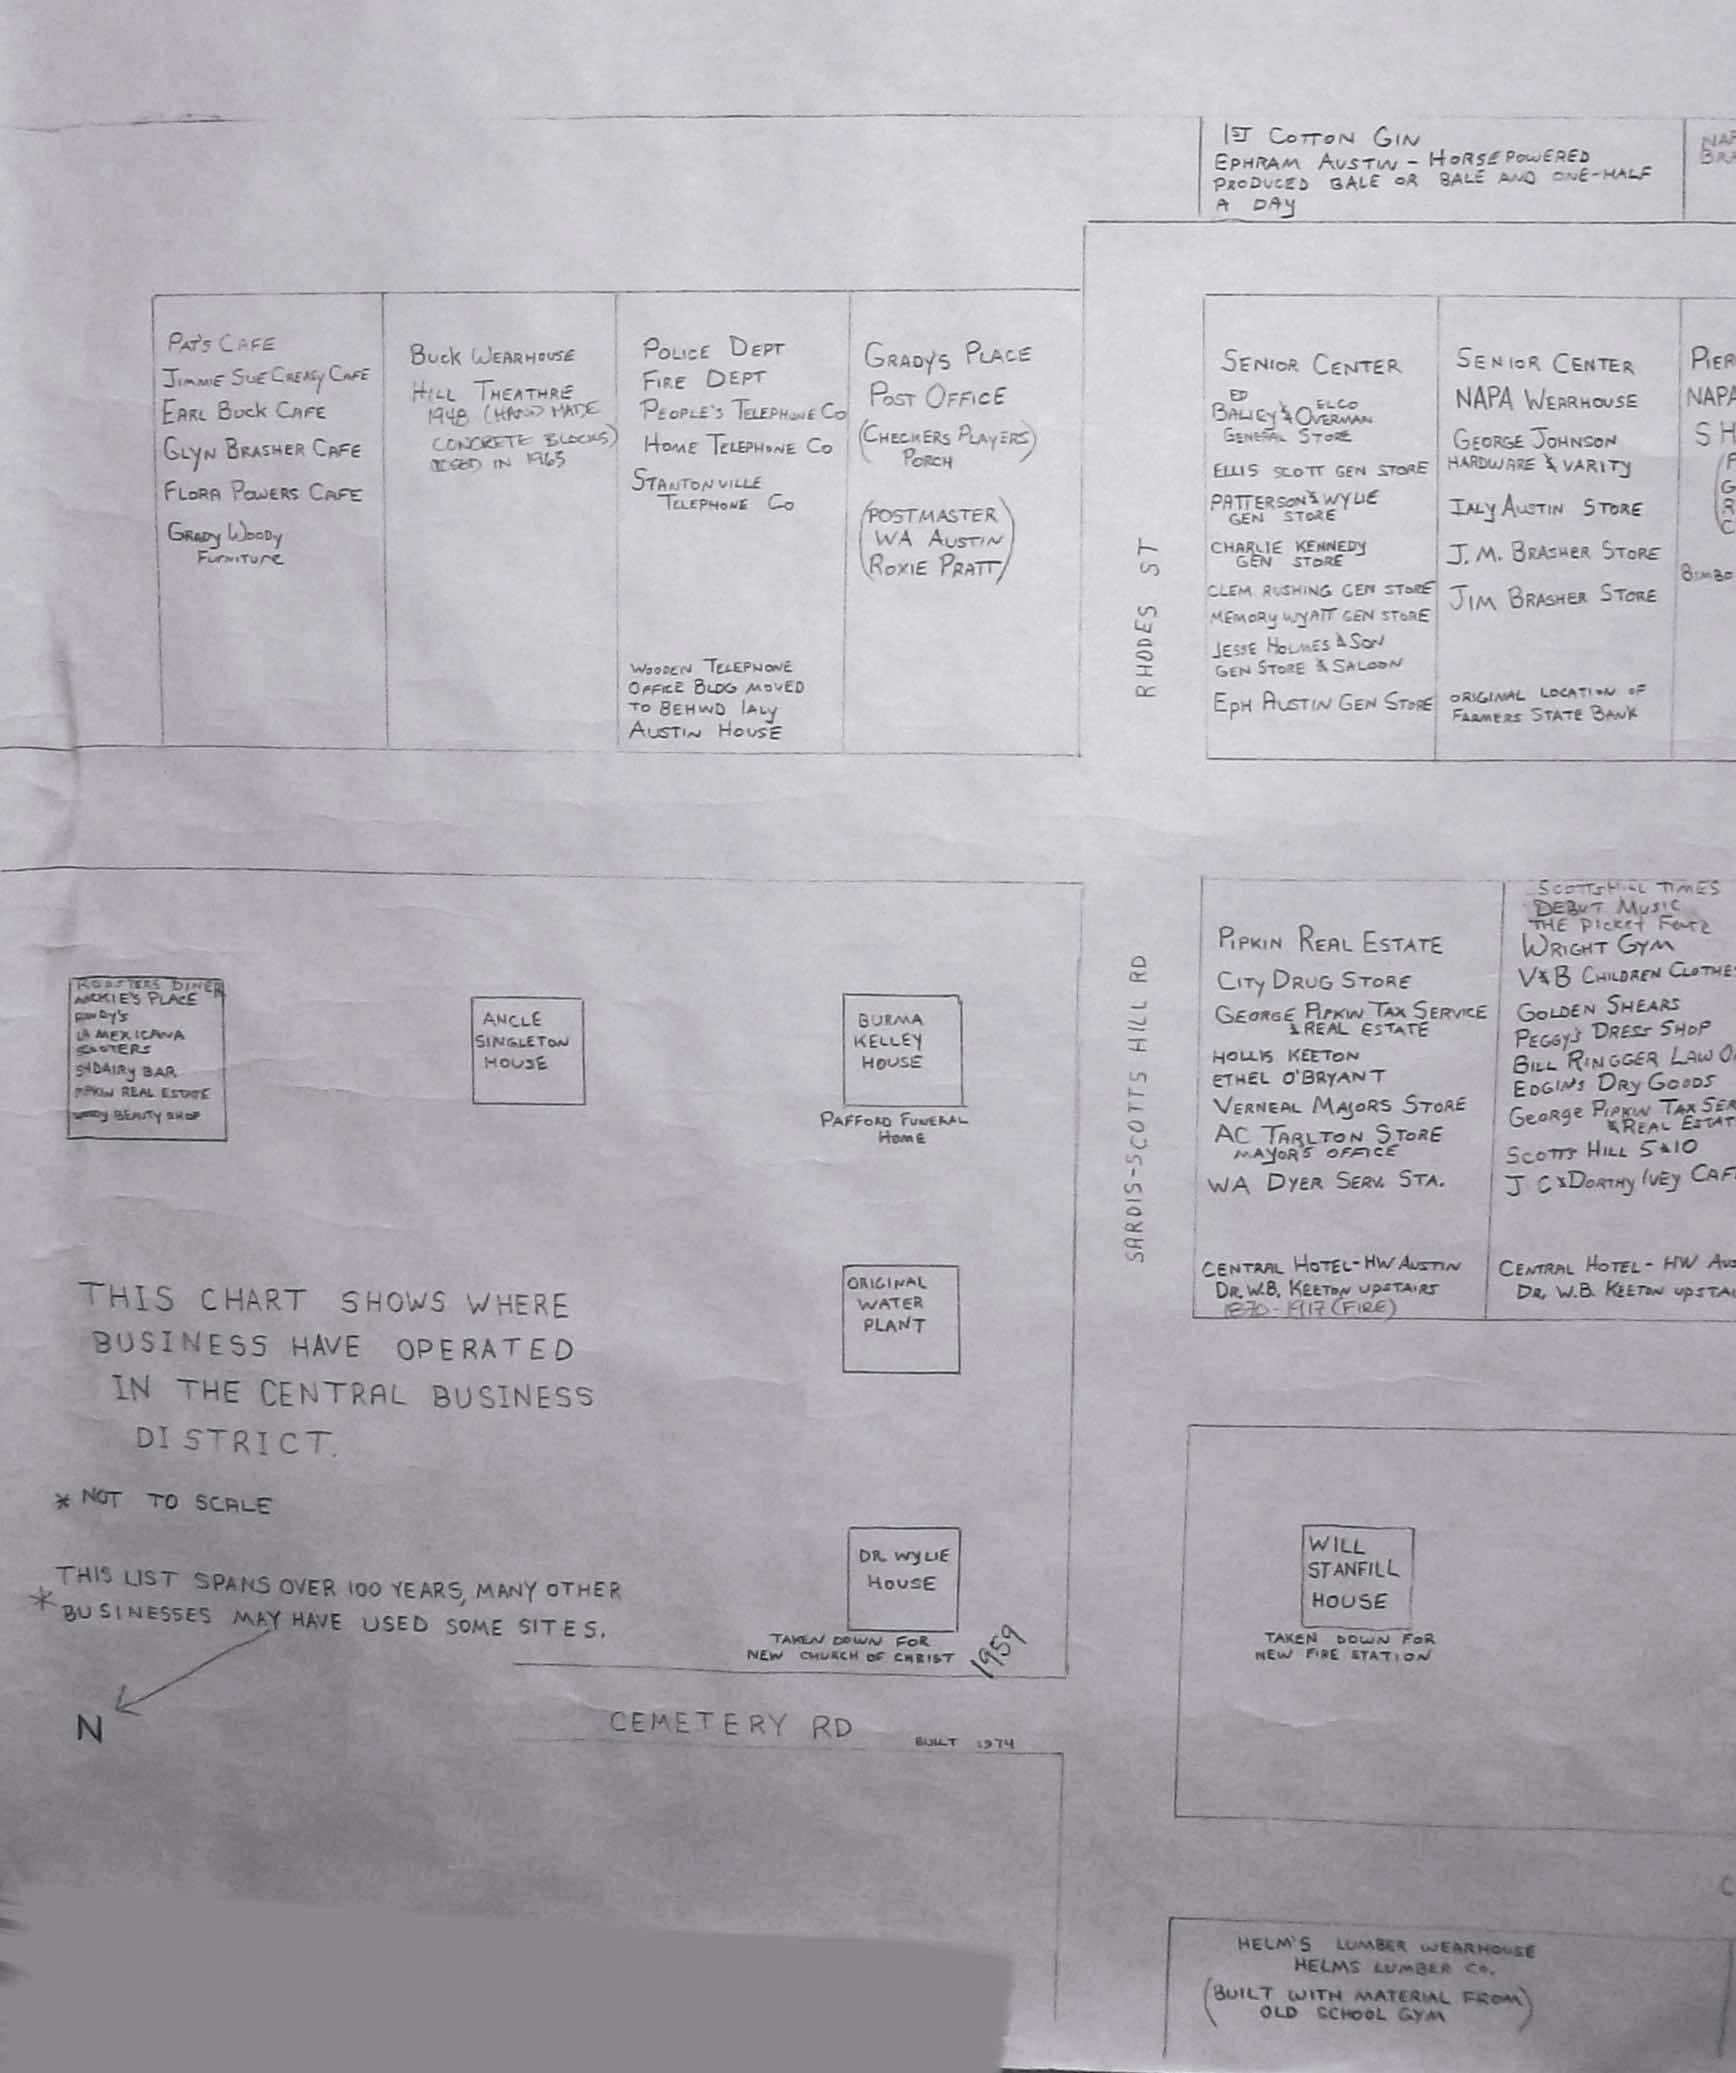 1ST COTTON GIN
EPHRAM AUSTIN - HORSEPOWERED
PRODUCED BALE OR BALE AND ONE-HALF
A DAY
PAT'S CAFE
JIMMIE SUE CREASY CAFE
EARL BUCK CAFE
GLYN BRASHER CAFE
FLORA POWERS CAFE
GRADY WOODY
FURNITURE
BUCK WEARHOUSE
HILL THEATHRE
1948 (HAND MADE
CONCRETE BLOCKS)
CLOSED IN 1963
POLICE DEPT
FIRE DEPT
PEOPLE'S TELEPHONE CO
HOME TELEPHONE CO
STANTONVILLE
TELEPHONE CO
WOODEN TELEPHONE
OFFICE BLDG MOVED
TO BEHIND IALY
AUSTIN HOUSE
GRADY'S PLACE
POST OFFICE
(CHECKERS PLAYERS)
PORCH
(POSTMASTER
WA AUSTIN
ROXIE PRATT)
RHODES ST
SENIOR CENTER
ED ELCO
BAILEY & OVERMAN
GENERAL STORE
ELLIS SCOTT GEN STORE
PATTERSON & WYLIE
GEN STORE
CHARLIE KENNEDY
GEN STORE
CLEM RUSHING GEN STORE
MEMORY WYATT GEN STORE
JESSE HOLMES & SON
GEN STORE & SALOON
EPH AUSTIN GEN STORE
SENIOR CENTER
NAPA WEARHOUSE
GEORGE JOHNSON
HARDWARE & VARITY
IALY AUSTIN STORE
J. M. BRASHER STORE
JIM BRASHER STORE
ORIGINAL LOCATION OF
FARMERS STATE BANK
NAPA
BIMBO
ROOSTERS DINER
MICKIE'S PLACE
LA MEXICANA
SCOOTERS
DAIRY BAR
PIPKIN REAL ESTATE
BEAUTY SHOP
ANCLE
SINGLETON
HOUSE
BURMA
KELLEY
HOUSE
PAFFORD FUNERAL
HOME
ORIGINAL
WATER
PLANT
DR. WYLIE
HOUSE
TAKEN DOWN FOR
NEW CHURCH OF CHRIST
1959
SARDIS-SCOTTS HILL RD
PIPKIN REAL ESTATE
CITY DRUG STORE
GEORGE PIPKIN TAX SERVICE
& REAL ESTATE
HOLLIS KEETON
ETHEL O'BRYANT
VERNEAL MAJORS STORE
AC TARLTON STORE
MAYOR'S OFFICE
WA DYER SERV. STA.
CENTRAL HOTEL-HW AUSTIN
DR. W.B. KEETON UPSTAIRS
1870-1917 (FIRE)
SCOTTS HILL TIMES
DEBUT MUSIC
THE PICKET FENCE
WRIGHT GYM
V&B CHILDREN CLOTHE
GOLDEN SHEARS
PEGGY'S DRESS SHOP
BILL RINGGER LAW
EDGINS DRY GOODS
GEORGE PIPKIN TAX SER
& REAL ESTAT
SCOTTS HILL 5&10
J C & DORTHY IVEY CAF
CENTRAL HOTEL - HW AUS
DR. W.B. KEETON UPSTAI
THIS CHART SHOWS WHERE
BUSINESS HAVE OPERATED
IN THE CENTRAL BUSINESS
DISTRICT.
* NOT TO SCALE
* THIS LIST SPANS OVER 100 YEARS, MANY OTHER
BUSINESSES MAY HAVE USED SOME SITES.
N
CEMETERY RD
BUILT 1974
WILL
STANFILL
HOUSE
TAKEN DOWN FOR
NEW FIRE STATION
HELM'S LUMBER WEARHOUSE
HELMS LUMBER CO.
(BUILT WITH MATERIAL FROM)
OLD SCHOOL GYM